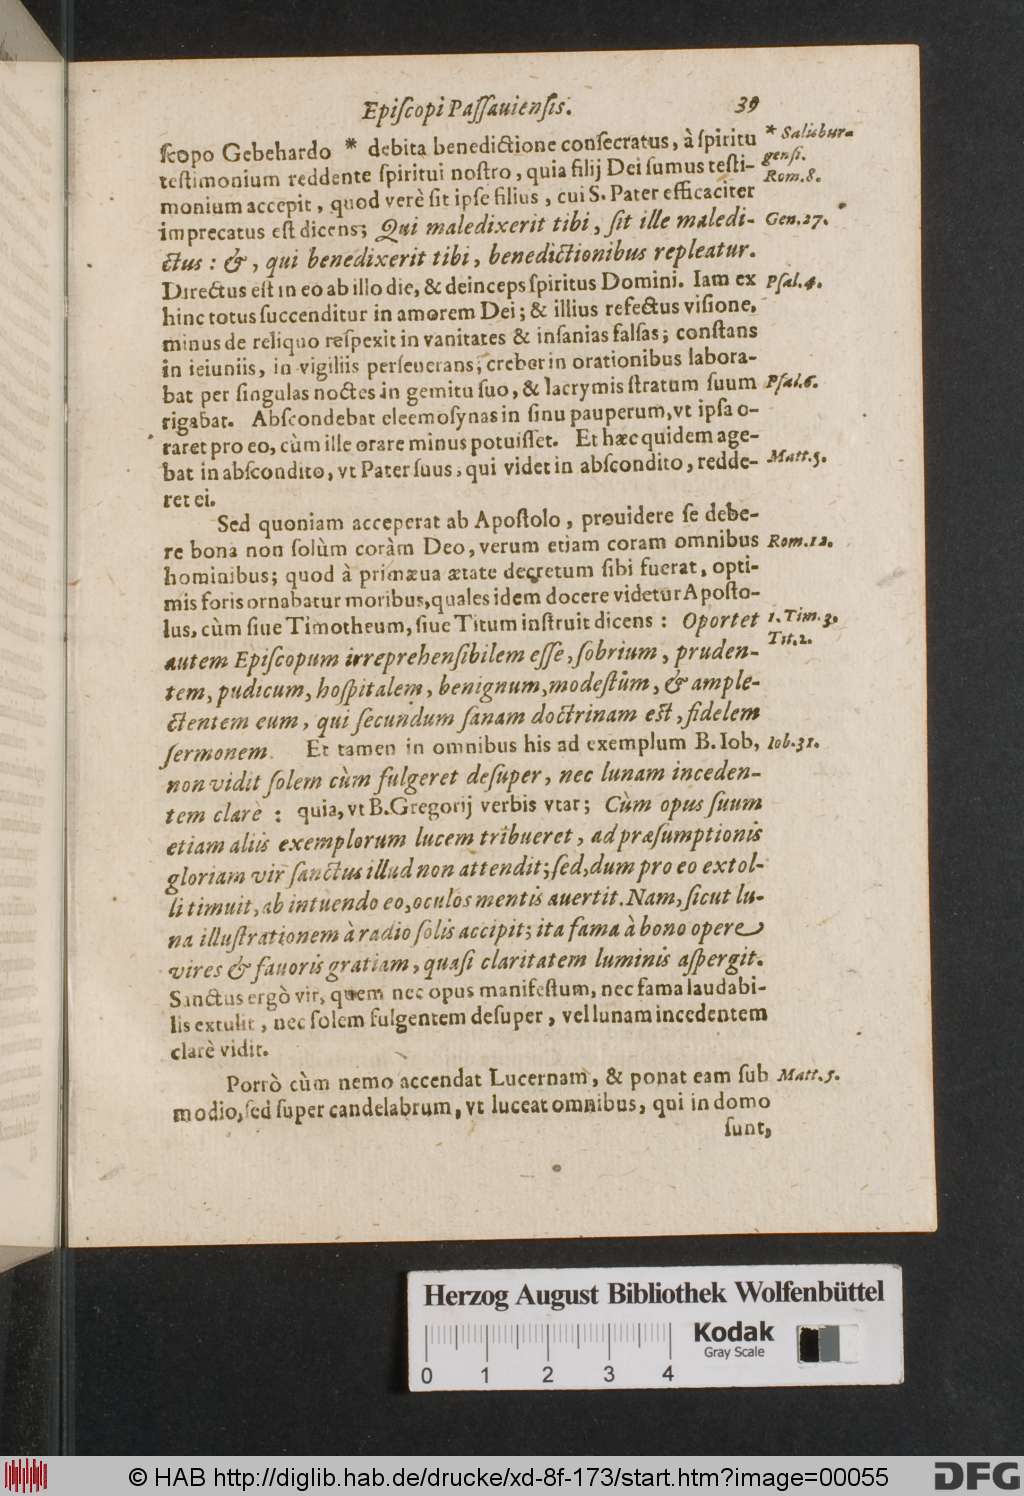 Episcopi Passauiensis. 39
scopo Gebehardo * debita benedictione consecratus, à spiritu * Salisbur-
gensi.
testimonium reddente spiritui nostro, quia filij Dei sumus testi- Rom. 8.
monium accepit, quod verè sit ipse filius, cui S. Pater efficaciter
imprecatus est dicens; Qui maledixerit tibi, sit ille maledi- Gen. 27.
ctus: &, qui benedixerit tibi, benedictionibus repleatur.
Directus est in eo ab illo die, & deinceps spiritus Domini. Iam ex Psal. 4.
hinc totus succenditur in amorem Dei; & illius refectus visione,
minus de reliquo respexit in vanitates & insanias falsas; constans
in ieiuniis, in vigiliis perseuerans, creber in orationibus labora-
bat per singulas noctes in gemitu suo, & lacrymis stratum suum Psal. 6.
rigabat. Abscondebat eleemosynas in sinu pauperum, vt ipsa o-
raret pro eo, cùm ille orare minus potuisset. Et hæc quidem age-
bat in abscondito, vt Pater suus, qui videt in abscondito, redde- Matt. 5.
ret ei.
Sed quoniam acceperat ab Apostolo, prouidere se debe-
re bona non solùm coràm Deo, verum etiam coram omnibus Rom. 12.
hominibus; quod à primæua ætate decretum sibi fuerat, opti-
mis foris ornabatur moribus, quales idem docere videtur Aposto-
lus, cùm siue Timotheum, siue Titum instruit dicens: Oportet 1. Tim. 3.
Tit. 2.
autem Episcopum irreprehensibilem esse, sobrium, pruden-
tem, pudicum, hospitalem, benignum, modestum, & ample-
ctentem eum, qui secundum sanam doctrinam est, fidelem
sermonem. Et tamen in omnibus his ad exemplum B. Iob, Iob. 31.
non vidit solem cùm fulgeret desuper, nec lunam inceden-
tem clarè: quia, vt B. Gregorij verbis vtar; Cùm opus suum
etiam aliis exemplorum lucem tribueret, ad præsumptionis
gloriam vir sanctus illud non attendit; sed, dum pro eo extol-
li timuit, ab intuendo eo, oculos mentis auertit. Nam, sicut lu-
na illustrationem à radio solis accipit; ita fama à bono opere
vires & fauoris gratiam, quasi claritatem luminis aspergit.
Sanctus ergò vir, quem nec opus manifestum, nec fama laudabi-
lis extulit, nec solem fulgentem desuper, vel lunam incedentem
clarè vidit.
Porrò cùm nemo accendat Lucernam, & ponat eam sub Matt. 5.
modio, sed super candelabrum, vt luceat omnibus, qui in domo
sunt,
Herzog August Bibliothek Wolfenbüttel
Kodak
Gray Scale
0 1 2 3 4
© HAB http://diglib.hab.de/drucke/xd-8f-173/start.htm?image=00055
DFG